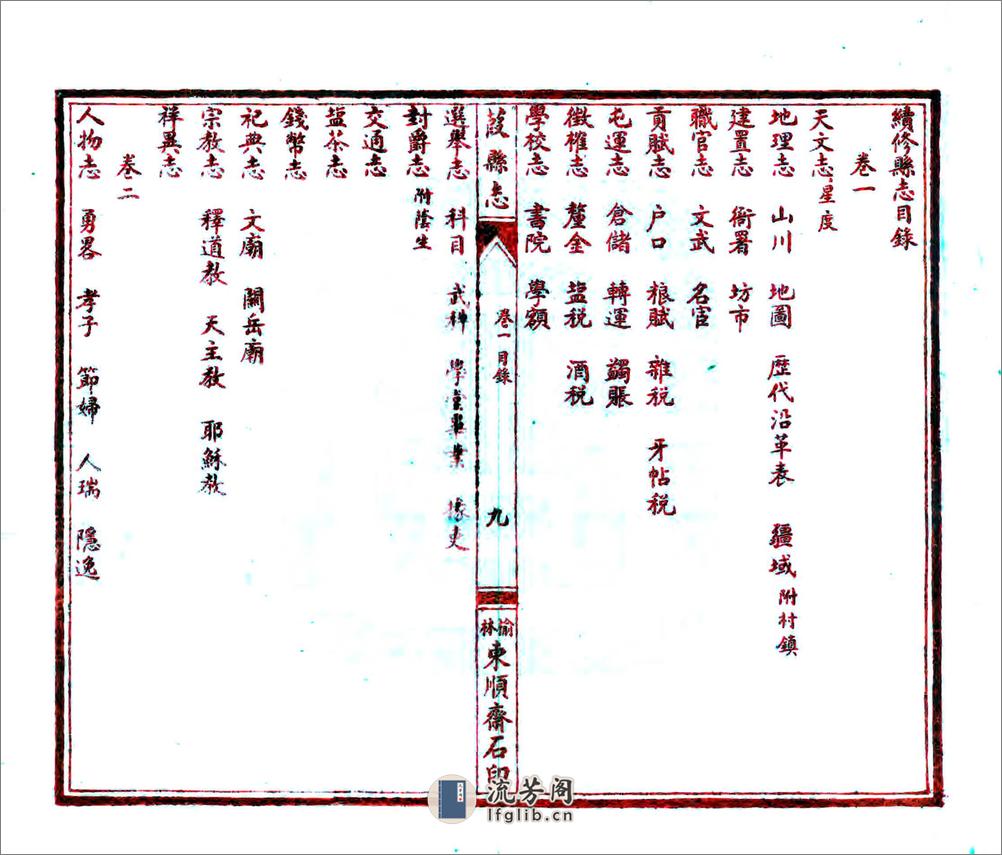 續修縣志目錄
卷一
天文志 星度
地理志 山川 地圖 歷代沿革表 疆域 附村鎮
建置志 衙署 坊市
職官志 文武 名宦
貢賦志 户口 粮賦 雜税 牙帖税
屯運志 倉儲 轉運 蠲賑
徵榷志 釐金 盐税 酒税
學校志 書院 學額
葭縣志
卷一目錄
九
榆林東順齋石印
選舉志 科目 武科 學堂畢業 掾吏
封爵志 附蔭生
交通志
盐茶志
錢幣志
祀典志 文廟 關岳廟
宗教志 釋道教 天主教 耶穌教
祥異志
卷二
人物志 勇畧 孝子 節婦 人瑞 隱逸
流芳阁
lfglib.cn